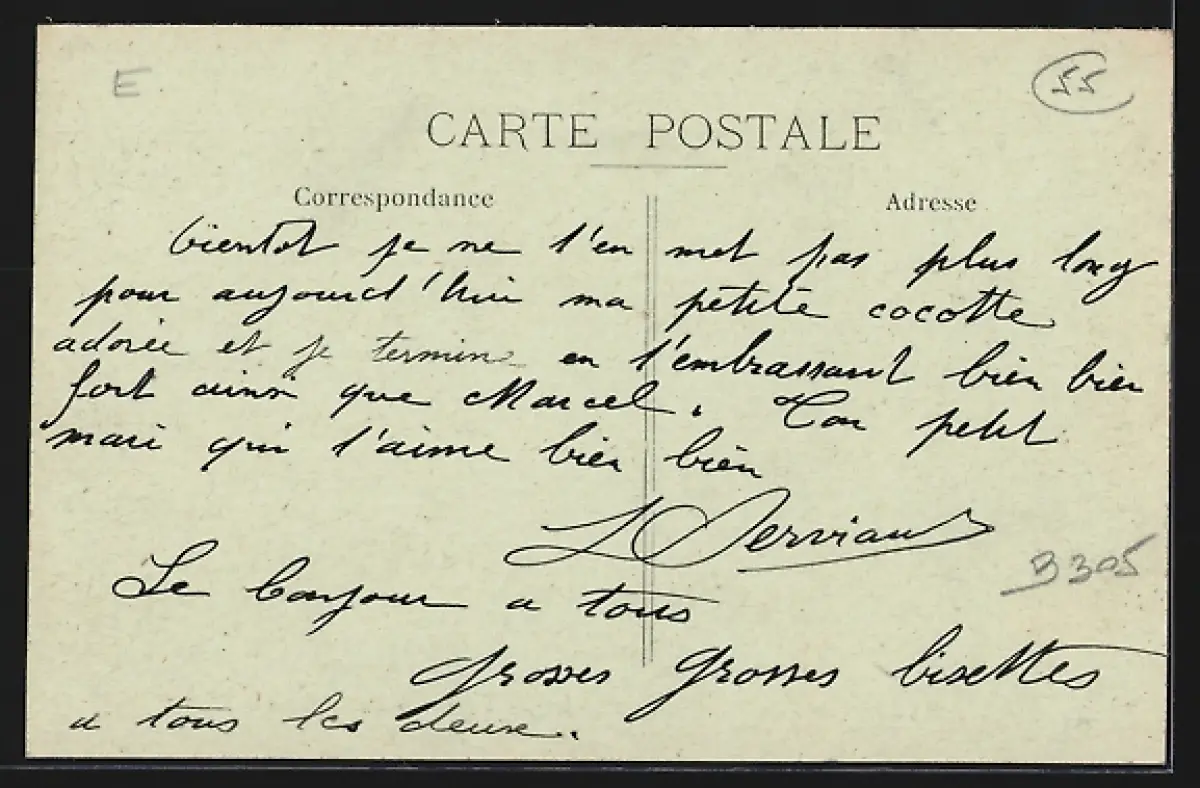 E
55
CARTE POSTALE
Correspondance
Adresse
bientot je ne t'en met pas plus long
pour aujourd'hui ma petite cocotte
adorée et je termine en t'embrassant bien bien
fort ainsi que Marcel. Ton petit
mari qui t'aime bien bien
L Derviaux
B305
Le bonjour a tous
grosses grosses bisettes
a tous les deux.